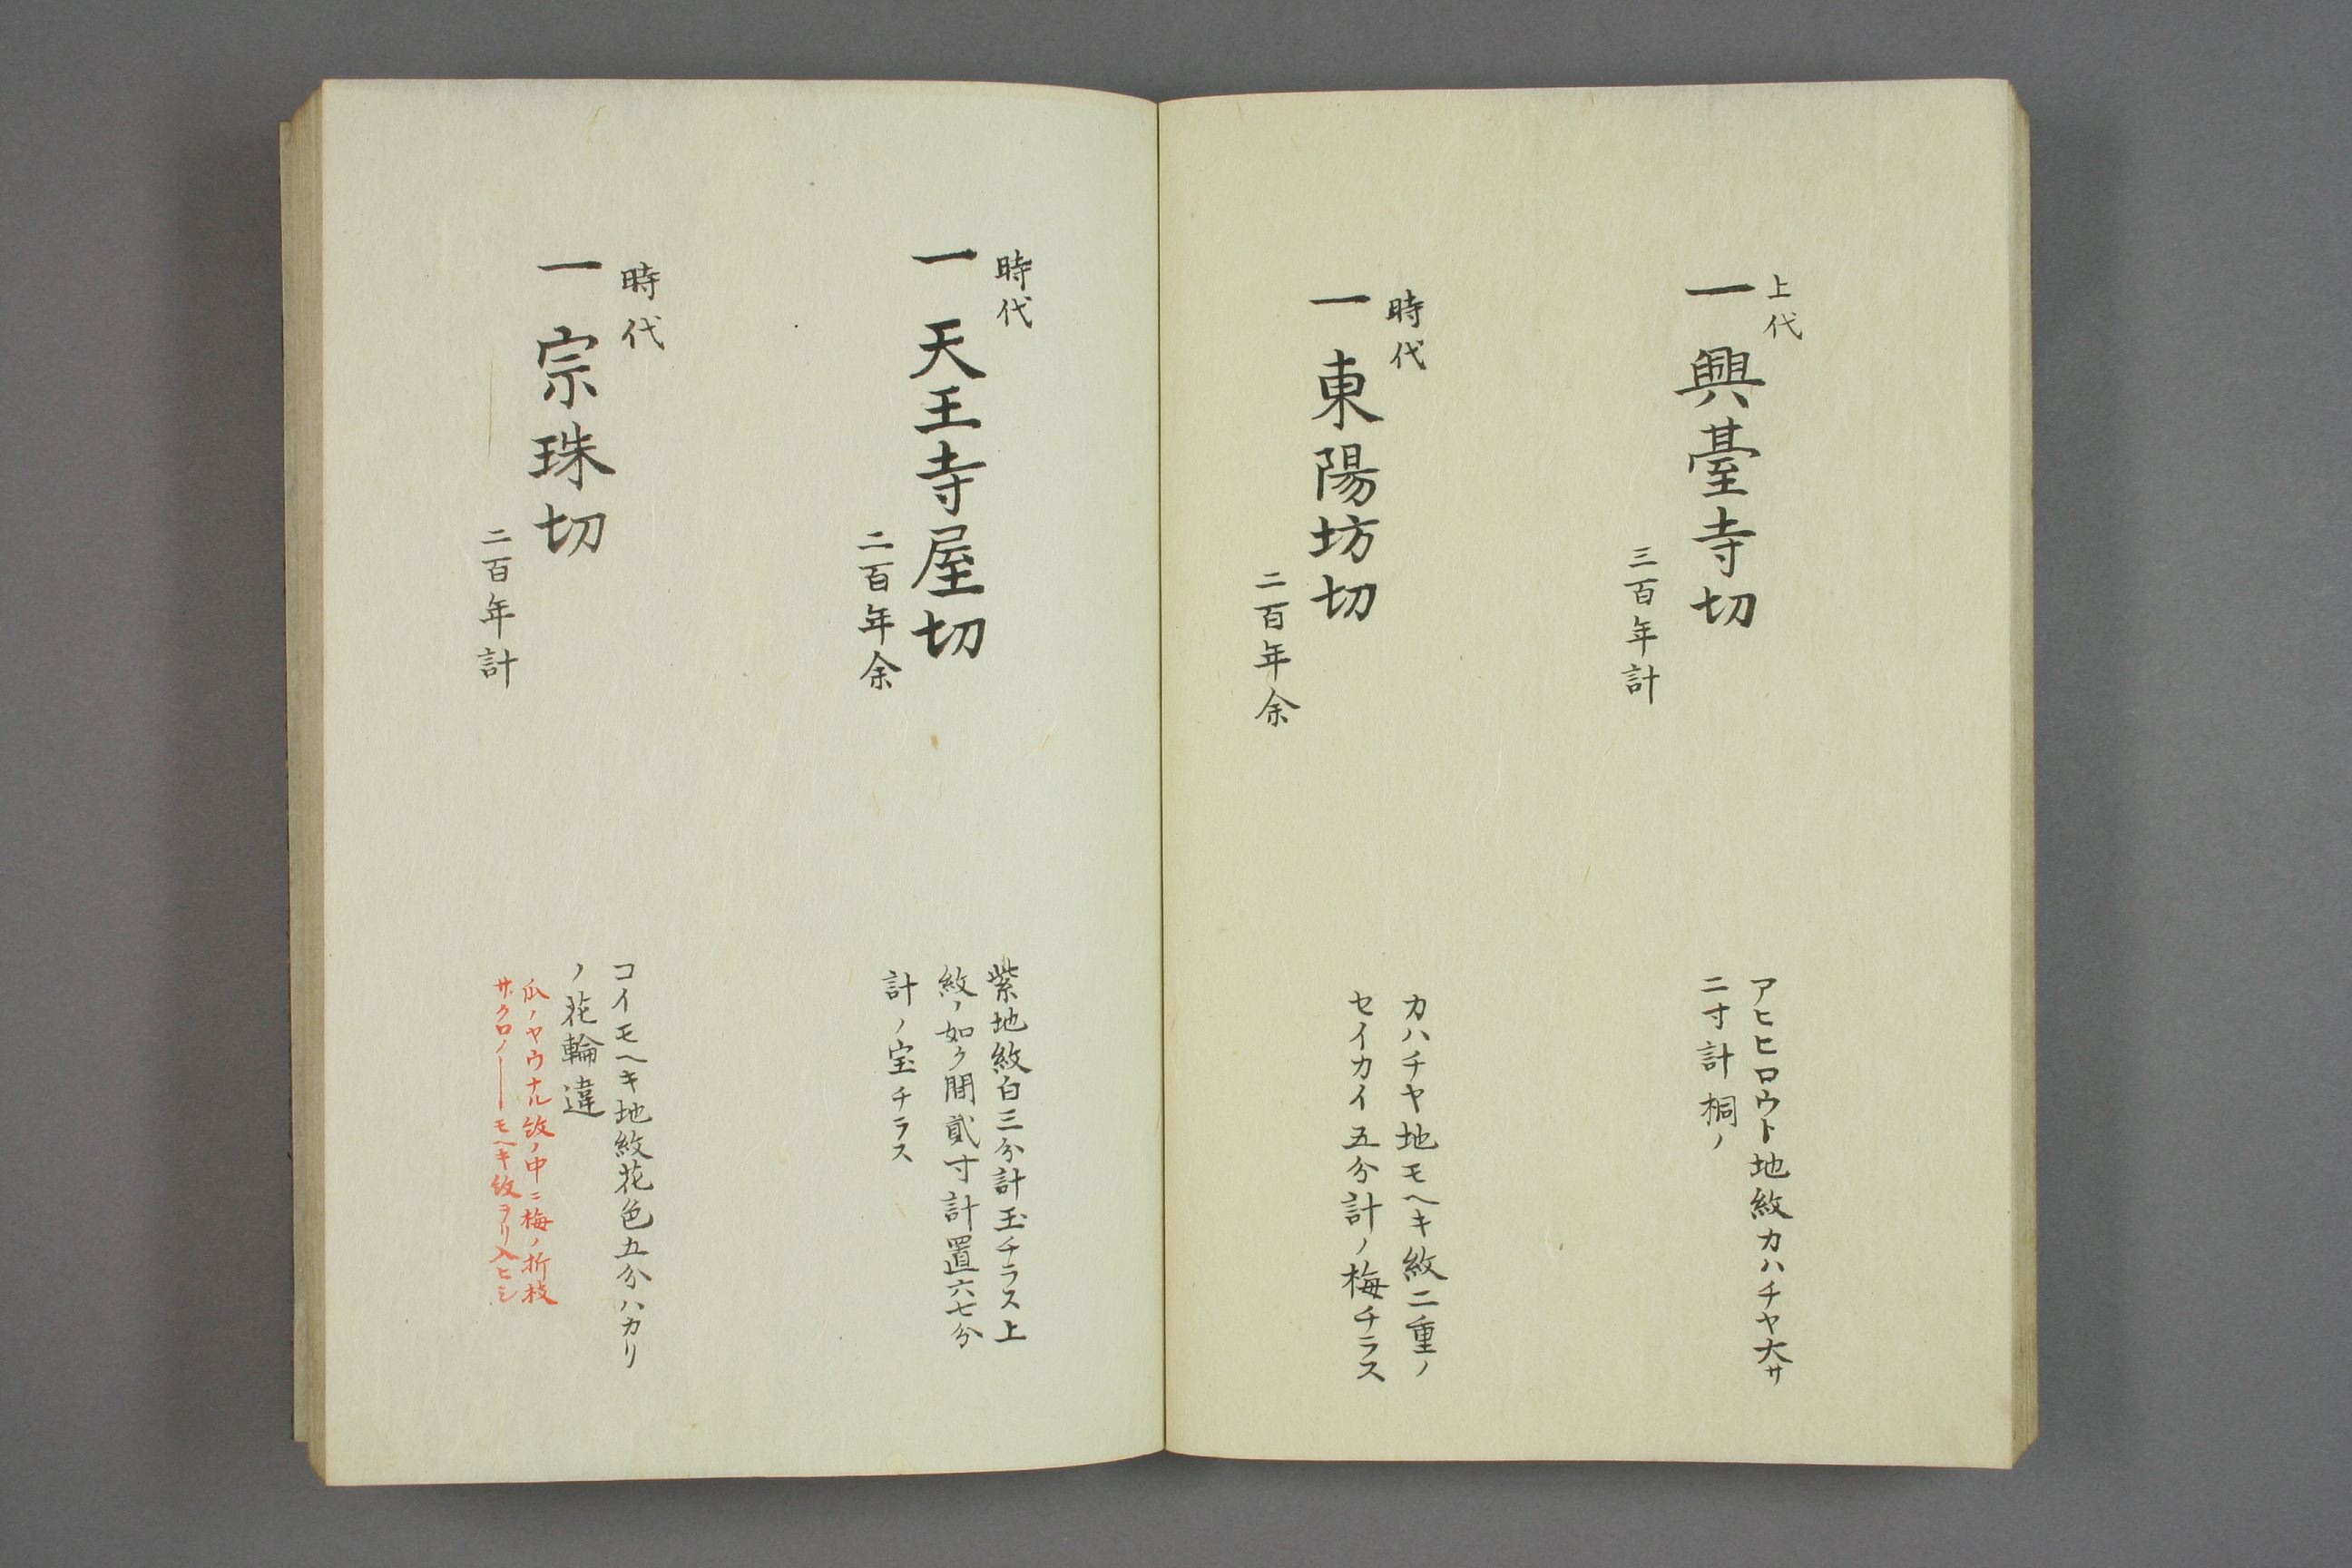 上代
一 興臺寺切
三百年計
アヒヒロウト地紋カハチヤ大サ
二寸計桐ノ
時代
一 東陽坊切
二百年余
カハチヤ地モヘキ紋二重ノ
セイカイ五分計ノ梅チラス
時代
一 天王寺屋切
二百年余
紫地紋白三分計玉チラス上
紋ノ如ク間貳寸計置六七分
計ノ宝チラス
時代
一 宗珠切
二百年計
コイモヘキ地紋花色五分ハカリ
ノ花輪違
瓜ノヤウナル紋ノ中ニ梅ノ折枝
サクロノ——モヘキ紋ヲリ入ヒシ